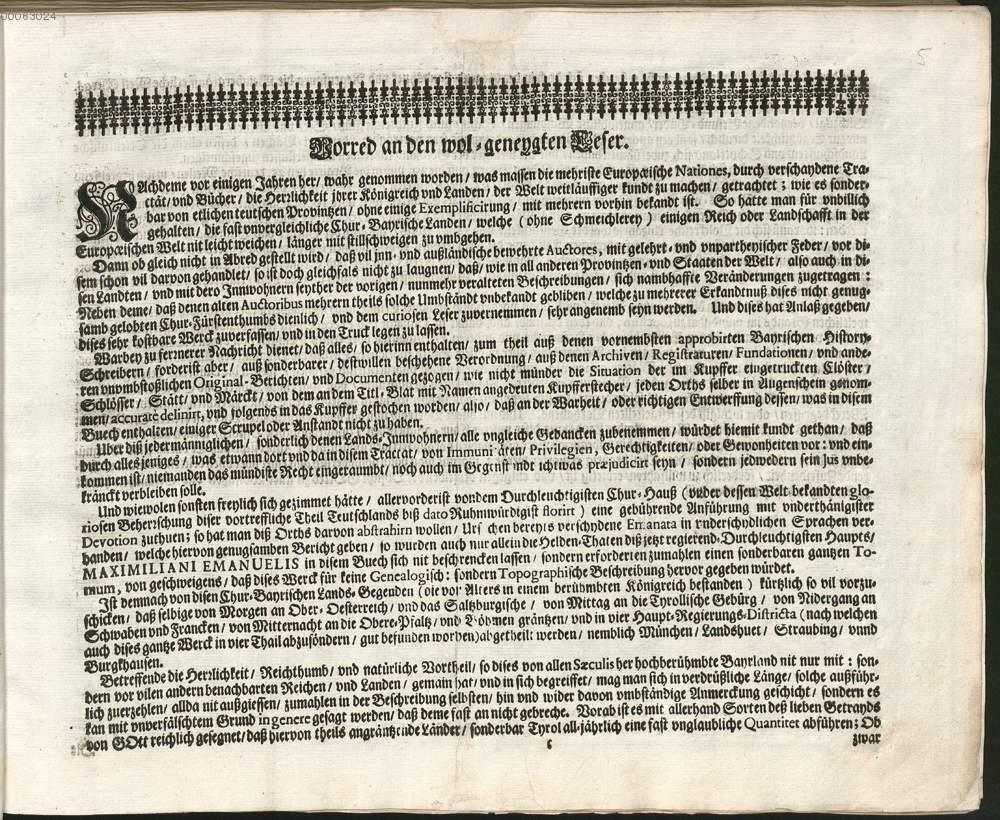 00063024
5
Vorred an den wol-geneygten Leser.
NAchdeme vor einigen Jahren her/ wahr genommen worden/ was massen die mehriste Europæische Nationes, durch verschaydene Tra-
ctät/ und Bücher/ die Herrlichkeit jhrer Königreich vnd Landen/ der Welt weitläuffiger kundt zu machen/ getrachtet; wie es sonder-
bar von etlichen teutschen Provintzen/ ohne einige Exemplificirung/ mit mehrern vorhin bekandt ist. So hätte man für vnbillich
gehalten/ die fast vnvergleichliche Chur-Bayrische Landen/ welche (ohne Schmeichlerey) einigen Reich oder Landschafft in der
Europæischen Welt nit leicht weichen/ länger mit stillschweigen zu vmbgehen.
Dann ob gleich nicht in Abred gestellt wird/ daß vil jnn- vnd außländische bewehrte Auctores, mit gelehrt- vnd vnpartheyischer Feder/ vor di-
sem schon vil darvon gehandlet/ so ist doch gleichfals nicht zu laugnen/ daß/ wie in all anderen Provintzen- vnd Staaten der Welt/ also auch in di-
sen Landten/ vnd mit dero Innwohnern seyther der vorigen/ nunmehr veralteten Beschreibungen/ sich nambhaffte Veränderungen zugetragen:
Neben deme/ daß denen alten Auctoribus mehrern theils solche Umbständt vnbekandt gebliben/ welche zu mehrerer Erkandtnuß dises nicht genug-
samb gelobten Chur-Fürstenthumbs dienlich/ vnd dem curiosen Leser zuvernemmen/ sehr angenemb seyn werden. Und dises hat Anlaß gegeben/
dises sehr kostbare Werck zuverfassen/ vnd in den Truck legen zu lassen.
Warbey zu fernerer Nachricht dienet/ daß alles/ so hierinn enthalten/ zum theil auß denen vornembsten approbirten Bayrischen History-
Schreibern/ forderist aber/ auß sonderbarer/ destwillen beschehene Verordnung/ auß denen Archiven/ Registraturen/ Fundationen/ vnd ande-
ren vnvmbstoßlichen Original-Berichten/ vnd Documenten gezogen/ wie nicht münder die Situation der im Kupffer eingetruckten Clöster/
Schlösser/ Stätt/ vnd Märckt/ von dem an dem Titl-Blat mit Namen angedeuten Kupfferstecher/ jeden Orths selber in Augenschein genom-
men/ accuratè delinirt, vnd folgends in das Kupffer gestochen worden/ also/ daß an der Warheit/ oder richtigen Entwerffung dessen/ was in disem
Buech enthalten/ einiger Scrupel oder Anstandt nicht zu haben.
Über diß jedermänniglichen/ sonderlich denen Lands-Innwohnern/ alle vngleiche Gedancken zubenemmen/ würdet hiemit kundt gethan/ daß
durch alles jeniges/ was etwann dort vnd da in disem Tractat/ von Immunitäten/ Privilegien, Gerechtigkeiten/ oder Gewonheiten vor: vnd ein-
kommen ist/ niemanden das mündiste Recht eingeraumbt/ noch auch im Gegenst ndt ichtwas præjudicirt seyn/ sondern jedwedern sein Jus vnbe-
kränckt verbleiben solle.
Und wiewolen sonsten freylich sich gezimmet hätte/ allervorderist von dem Durchleuchtigisten Chur-Hauß (vnder dessen Welt-bekandten glo-
riosen Beherrschung diser vortreffliche Theil Teutschlands biß dato Ruhmwürdigist florirt) eine gebührende Anführung mit vnderthänigister
Devotion zuthuen; so hat man diß Orths darvon abstrahirn wollen/ Ursachen bereyts verschydene Emanata in vnderschydlichen Sprachen ver-
handen/ welche hiervon genugsamben Bericht geben/ so wurden auch nur allein die Helden-Thaten diß jetzt regierend-Durchleuchtigsten Haupts/
MAXIMILIANI EMANUELIS in disem Buech sich nit beschrencken lassen/ sondern erforderten zumahlen einen sonderbaren gantzen To-
mum, von geschweigens/ daß dises Werck für keine Genealogisch: sondern Topographische Beschreibung hervor gegeben würdet.
Ist demnach von disen Chur-Bayrischen Lands-Gegenden (die vor Alters in einem berühmbten Königreich bestanden) kürtzlich so vil vorzu-
schicken/ daß selbige von Morgen an Ober-Oesterreich/ vnd das Saltzburgische/ von Mittag an die Tyrollische Gebürg/ von Nidergang an
Schwaben vnd Francken/ von Mitternacht an die Obere-Pfaltz/ vnd Böhmen gräntzen/ vnd in vier Haupt-Regierungs-Districta (nach welchen
auch dises gantze Werck in vier Thail abzusöndern/ gut befunden worden) abgetheilt werden/ nemblich München/ Landshuet/ Straubing/ vnnd
Burgkhausen.
Betreffende die Herrlichkeit/ Reichthumb/ vnd natürliche Vortheil/ so dises von allen Sæculis her hochberühmbte Bayrland nit nur mit: son-
dern vor vilen andern benachbarten Reichen/ vnd Landen/ gemain hat/ vnd in sich begreiffet/ mag man sich in verdrüßliche Länge/ solche außführ-
lich zuerzehlen/ allda nit außgiessen/ zumahlen in der Beschreibung selbsten/ hin vnd wider davon vmbständige Anmerckung geschicht/ sondern es
kan mit vnverfälschtem Grund in genere gesagt werden/ daß deme fast an nicht gebreche. Vorab ist es mit allerhand Sorten deß lieben Getrayds
von GOtt reichlich gesegnet/ daß hiervon theils angräntzende Länder/ sonderbar Tyrol all-jährlich eine fast vnglaubliche Quantitet abführen; Ob
c
zwar